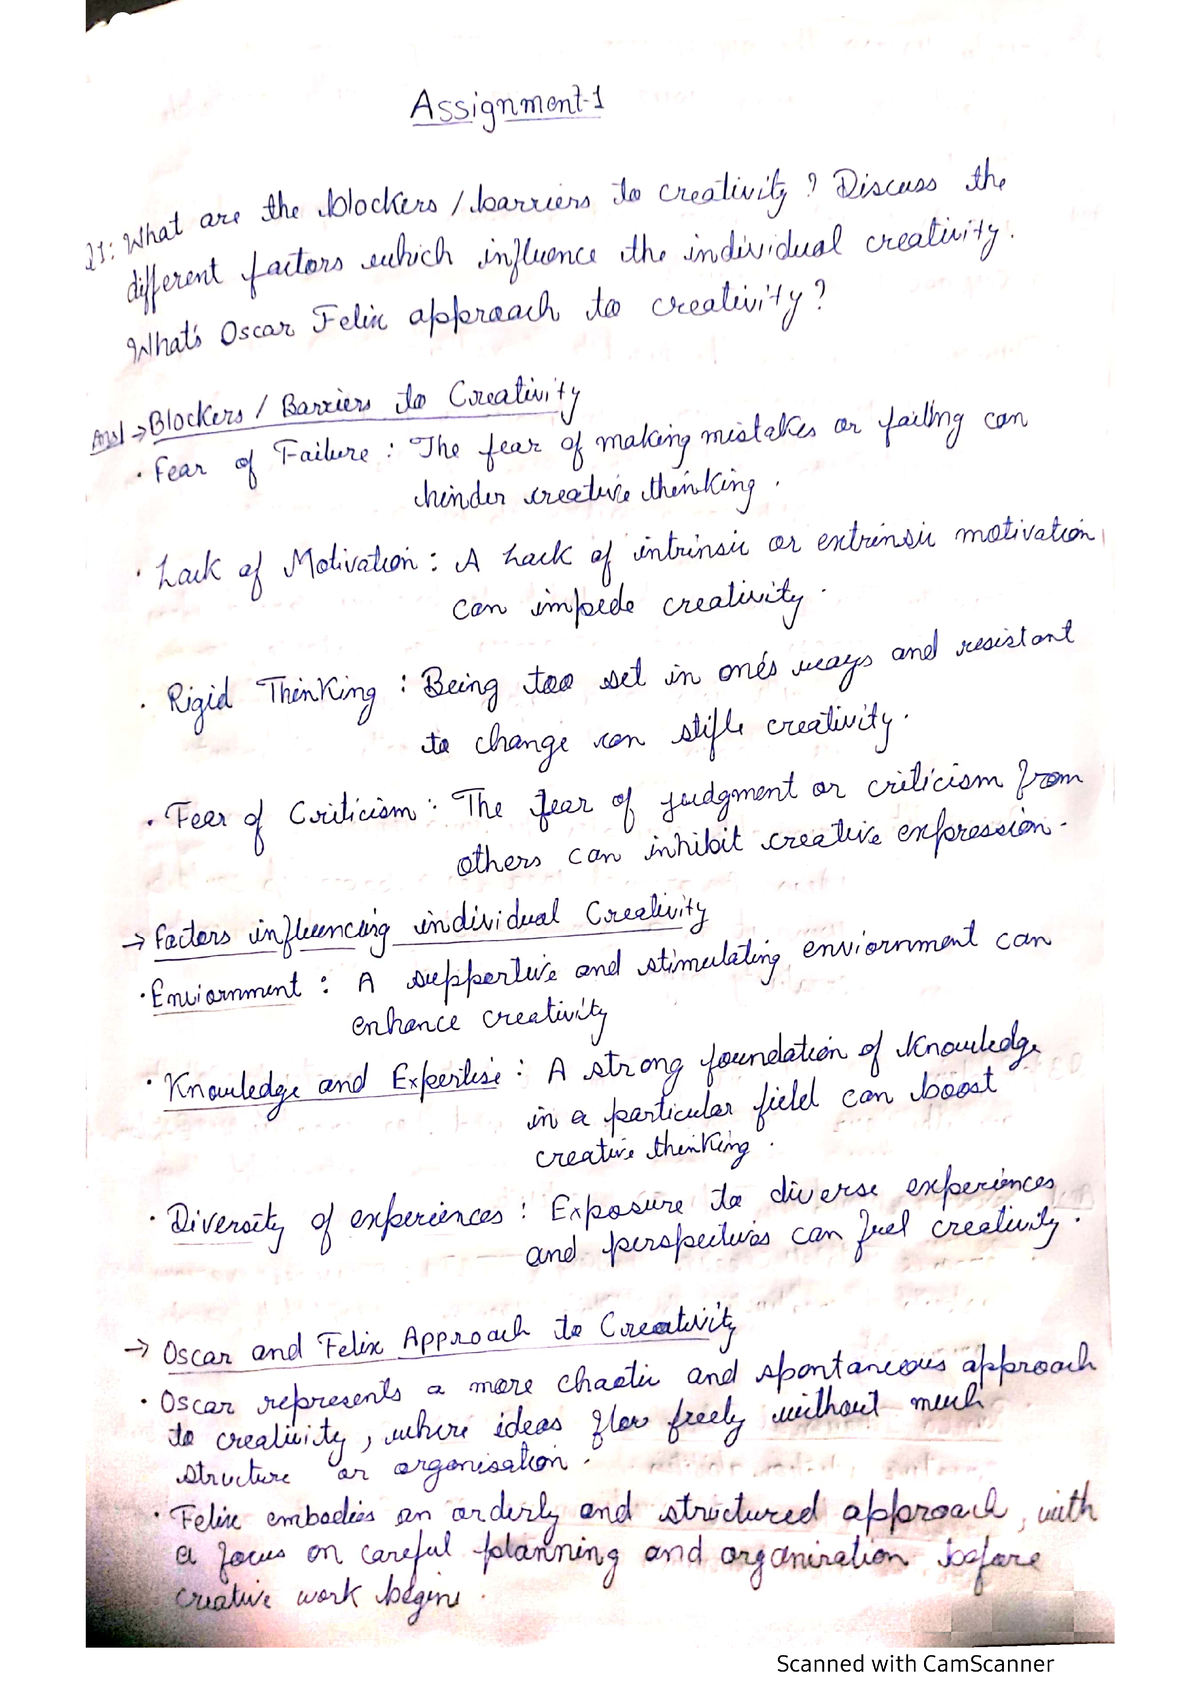 Assignment-1
Q1: What are the blockers / barriers to creativity ? Discuss the
different factors which influence the individual creativity.
What's Oscar Felix approach to creativity ?
Ans1 → Blockers / Barriers to Creativity
• Fear of Failure : The fear of making mistakes or failing can
hinder creative thinking .
• Lack of Motivation : A Lack of intrinsic or extrinsic motivation
can impede creativity .
• Rigid Thinking : Being too set in one's ways and resistant
to change can stifle creativity .
• Fear of Criticism : The fear of judgment or criticism from
others can inhibit creative expression .
→ Factors influencing individual Creativity
• Enviornment : A supportive and stimulating enviornment can
enhance creativity
• Knowledge and Expertise : A strong foundation of Knowledge
in a particular field can boost
creative thinking .
• Diversity of experiences : Exposure to diverse experiences
and perspectives can fuel creativity .
→ Oscar and Felix Approach to Creativity
• Oscar represents a more chaotic and spontaneous approach
to creativity , where ideas flow freely without much
structure or organisation .
• Felix embodies an orderly and structured approach , with
a focus on careful planning and organization before
creative work begins .
Scanned with CamScanner